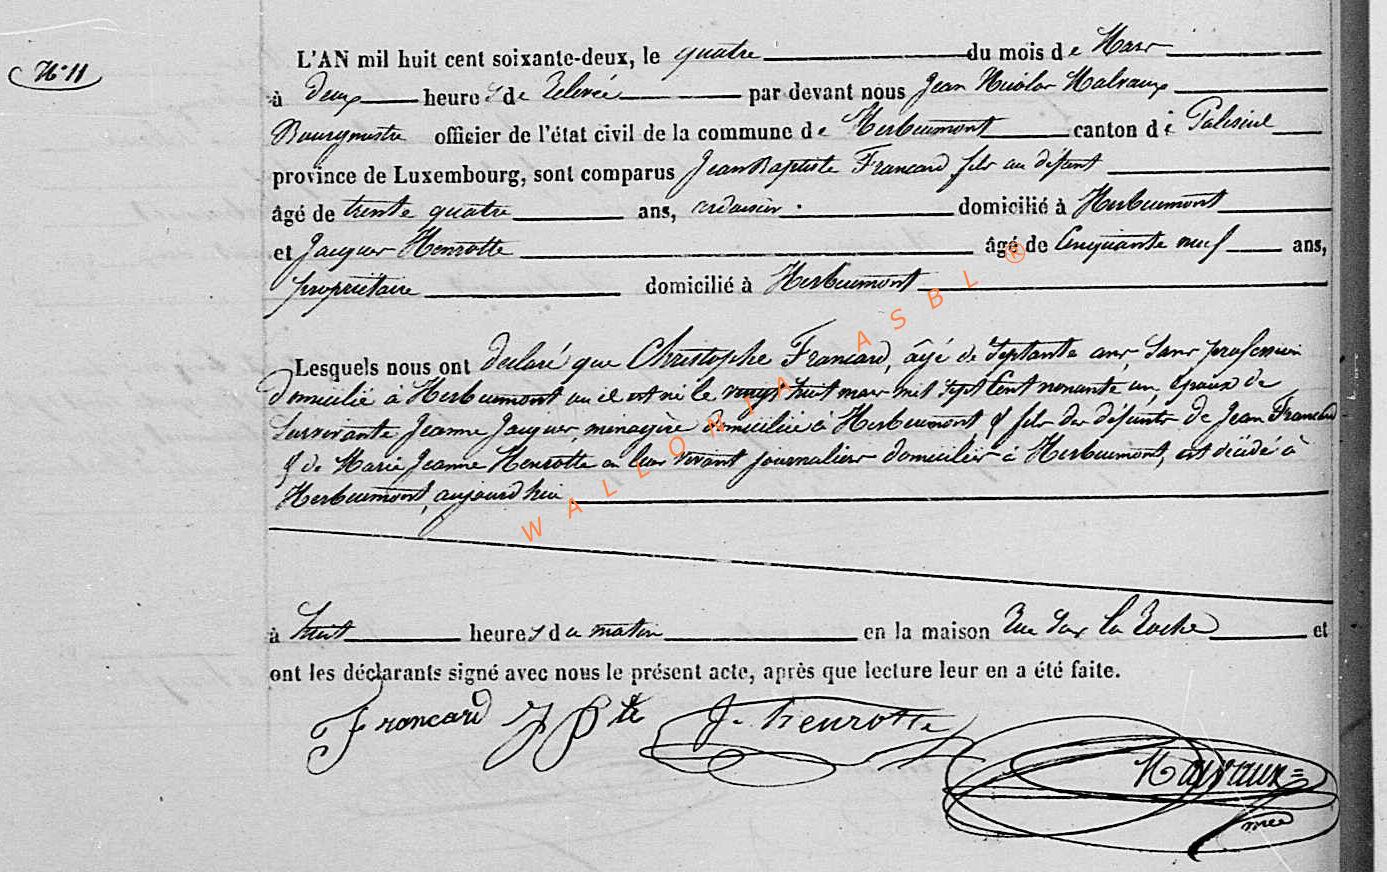 N° 11
L'AN mil huit cent soixante-deux, le quatre du mois de Mars
à Deux heures de Relevée par devant nous Jean Nicolas Malvaux
Bourgmestre officier de l'état civil de la commune de Herbeumont canton de Paliseul
province de Luxembourg, sont comparus Jean Baptiste Francard fils au défunt
âgé de trente quatre ans, ardoisier. domicilié à Herbeumont
et Jacques Henrotte âgé de Cinquante neuf ans,
propriétaire domicilié à Herbeumont
Lesquels nous ont déclaré que Christophe Francard, âgé de Septante ans, Sans profession
Domicilié à Herbeumont où il est né le vingt huit mars mil Sept Cent nonante un, Epoux de
Survivante Jeanne Jacques, ménagère domiciliée à Herbeumont & fils des défunts de Jean Francard
& de Marie Jeanne Henrotte en leur vivant journaliers domiciliés à Herbeumont, est décédé à
Herbeumont, aujourd'hui
à huit heures du matin en la maison Rue Sur la Roche et
ont les déclarants signé avec nous le présent acte, après que lecture leur en a été faite.
Francard J Bte J. Henrotte
Malvaux
WALLONIA ASBL ®